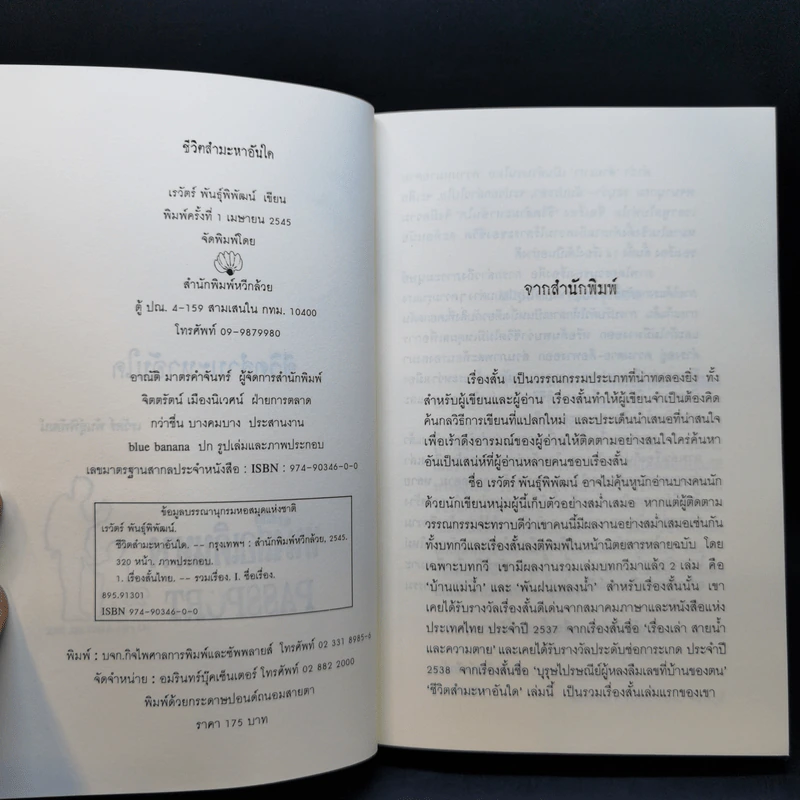 ชีวิตสำมะหาอันใด
เรวัตร์ พันธุ์พิพัฒน์ เขียน
พิมพ์ครั้งที่ 1 เมษายน 2545
จัดพิมพ์โดย
สำนักพิมพ์หวีกล้วย
ตู้ ปณ. 4-159 สามเสนใน กทม. 10400
โทรศัพท์ 09-9879980
อาณัติ มาตรคำจันทร์ ผู้จัดการสำนักพิมพ์
จิตตรัตน์ เมืองนิเวศน์ ฝ่ายการตลาด
กว่าชื่น บางคมบาง ประสานงาน
blue banana ปก รูปเล่มและภาพประกอบ
เลขมาตรฐานสากลประจำหนังสือ : ISBN : 974-90346-0-0
ข้อมูลบรรณานุกรมหอสมุดแห่งชาติ
เรวัตร์ พันธุ์พิพัฒน์.
ชีวิตสำมะหาอันใด. -- กรุงเทพฯ : สำนักพิมพ์หวีกล้วย, 2545.
320 หน้า. ภาพประกอบ.
1. เรื่องสั้นไทย. -- รวมเรื่อง. I. ชื่อเรื่อง.
895.91301
ISBN 974-90346-0-0
พิมพ์ : บจก.กิจไพศาลการพิมพ์และซัพพลายส์ โทรศัพท์ 02 331 8985-6
จัดจำหน่าย : อมรินทร์บุ๊คเซ็นเตอร์ โทรศัพท์ 02 882 2000
พิมพ์ด้วยกระดาษปอนด์ถนอมสายตา
ราคา 175 บาท
จากสำนักพิมพ์
เรื่องสั้น เป็นวรรณกรรมประเภทที่น่าทดลองยิ่ง ทั้ง
สำหรับผู้เขียนและผู้อ่าน เรื่องสั้นทำให้ผู้เขียนจำเป็นต้องคิด
ค้นกลวิธีการเขียนที่แปลกใหม่ และประเด็นนำเสนอที่น่าสนใจ
เพื่อเร้าดึงอารมณ์ของผู้อ่านให้ติดตามอย่างสนใจใคร่ค้นหา
อันเป็นเสน่ห์ที่ผู้อ่านหลายคนชอบเรื่องสั้น
ชื่อ เรวัตร์ พันธุ์พิพัฒน์ อาจไม่คุ้นหูนักอ่านบางคนนัก
ด้วยนักเขียนหนุ่มผู้นี้เก็บตัวอย่างสม่ำเสมอ หากแต่ผู้ติดตาม
วรรณกรรมจะทราบดีว่าเขาคนนี้มีผลงานอย่างสม่ำเสมอเช่นกัน
ทั้งบทกวีและเรื่องสั้นลงตีพิมพ์ในหน้านิตยสารหลายฉบับ โดย
เฉพาะบทกวี เขามีผลงานรวมเล่มบทกวีมาแล้ว 2 เล่ม คือ
'บ้านแม่น้ำ' และ 'พันฝนเพลงน้ำ' สำหรับเรื่องสั้นนั้น เขา
เคยได้รับรางวัลเรื่องสั้นดีเด่นจากสมาคมภาษาและหนังสือแห่ง
ประเทศไทย ประจำปี 2537 จากเรื่องสั้นชื่อ 'เรื่องเล่า สายน้ำ
และความตาย' และเคยได้รับรางวัลประดับช่อการะเกด ประจำปี
2538 จากเรื่องสั้นชื่อ 'บุรุษไปรษณีย์ผู้หลงลืมเลขที่บ้านของตน'
'ชีวิตสำมะหาอันใด' เล่มนี้ เป็นรวมเรื่องสั้นเล่มแรกของเขา